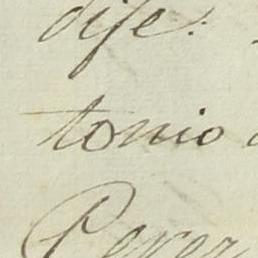 dise:
tonio
Perez